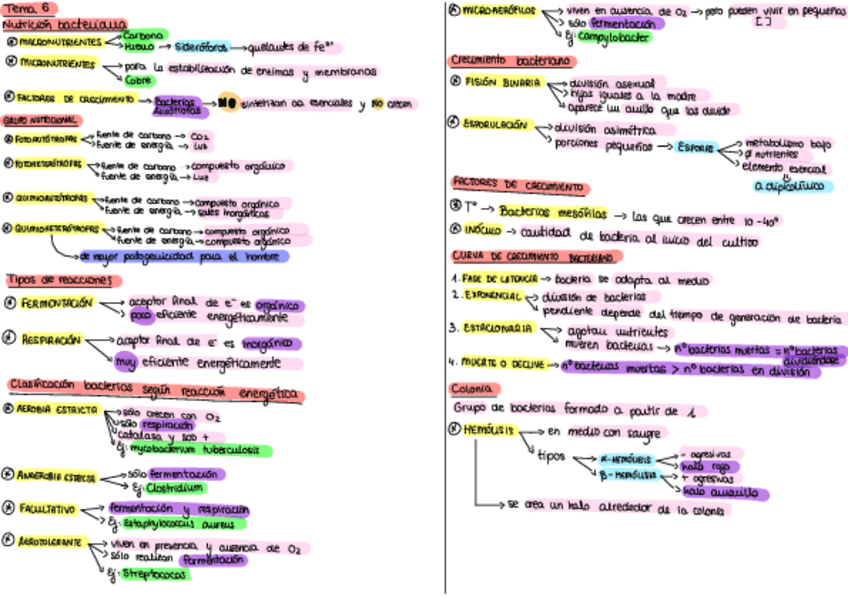 Tema 6
Nutrición bacteriana
* MACRONUTRIENTES → Carbono
→ Hierro → Sideróforos → quelantes de Fe³⁺
* MICRONUTRIENTES → para la estabilización de enzimas y membranas
→ Cobre
* FACTORES DE CRECIMIENTO → Bacterias Auxótrofas → NO sintetizan aa esenciales y NO crecen
GRUPO NUTRICIONAL
* FOTOAUTÓTROFAS → fuente de carbono → CO2
→ fuente de energía → Luz
* FOTOHETERÓTROFAS → fuente de carbono → compuesto orgánico
→ fuente de energía → Luz
* QUIMIOAUTÓTROFAS → fuente de carbono → compuesto orgánico
→ fuente de energía → sales inorgánicas
* QUIMIOHETERÓTROFAS → fuente de carbono → compuesto orgánico
→ fuente de energía → compuesto orgánico
→ de mayor patogenicidad para el hombre
Tipos de reacciones
* FERMENTACIÓN → aceptor final de e⁻ es orgánico
→ poco eficiente energéticamente
* RESPIRACIÓN → aceptor final de e⁻ es inorgánico
→ muy eficiente energéticamente
Clasificación bacterias según reacción energética
* AEROBIA ESTRICTA → sólo crecen con O2
→ sólo respiración
→ catalasa y sod +
→ Ej: mycobacterium tuberculosis
* ANAEROBIA ESTRICTA → sólo fermentación
→ Ej: Clostridium
* FACULTATIVO → fermentación y respiración
→ Ej: Estaphylococcus aureus
* AEROTOLERANTE → viven en presencia y ausencia de O2
→ sólo realizan fermentación
→ Ej: Streptococos
* MICROAERÓFILOS → viven en ausencia de O2 → pero pueden vivir en pequeñas [ ]
→ sólo fermentación
→ Ej: Campylobacter
Crecimiento bacteriano
* FISIÓN BINARIA → división asexual
→ hijas iguales a la madre
→ aparece un anillo que las divide
* ESPORULACIÓN → división asimétrica
→ porciones pequeñas → ESPORAS → metabolismo bajo
→ Ø nutrientes
→ elemento esencial
a. dipicolínico
FACTORES DE CRECIMIENTO
* Tª → Bacterias mesófilas → las que crecen entre 10-40º
* INÓCULO → cantidad de bacteria al inicio del cultivo
CURVA DE CRECIMIENTO BACTERIANO
1. FASE DE LATENCIA → bacteria se adapta al medio
2. EXPONENCIAL → división de bacterias
→ pendiente depende del tiempo de generación de bacteria
3. ESTACIONARIA → agotan nutrientes
→ mueren bacterias → nº bacterias muertas = nº bacterias dividiéndose
4. MUERTE O DECLIVE → nº bacterias muertas > nº bacterias en división
Colonia
Grupo de bacterias formado a partir de 1
* HEMÓLISIS → en medio con sangre
→ tipos → α-HEMÓLISIS → - agresivas
→ halo rojo
→ β-HEMÓLISIS → + agresivas
→ halo amarillo
→ se crea un halo alrededor de la colonia